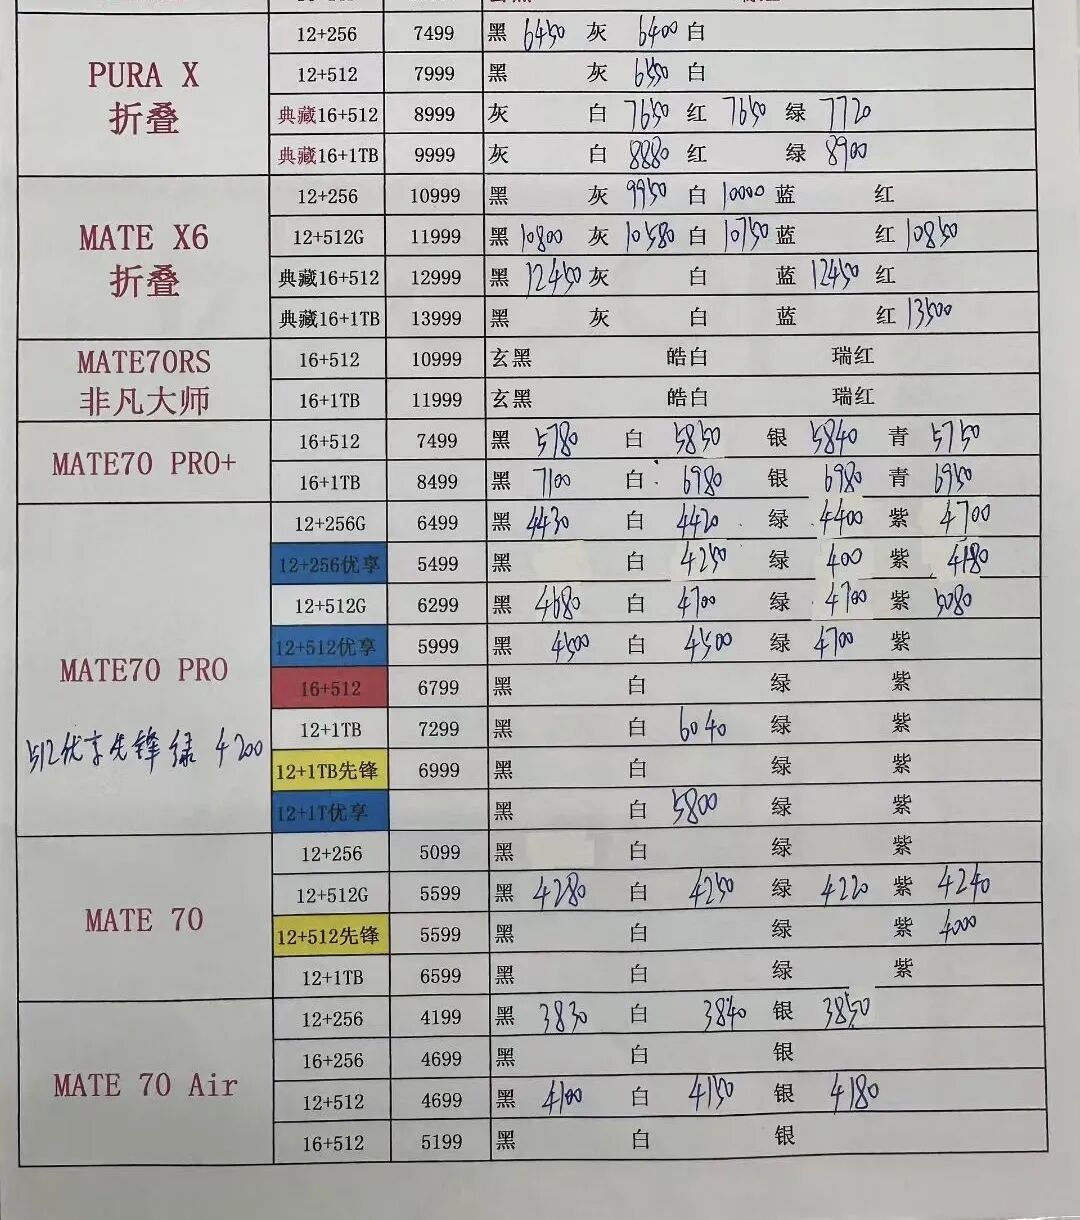 PURA X
折叠
12+256 7499 黑 6450 灰 6400 白
12+512 7999 黑 灰 6550 白
典藏16+512 8999 灰 白 7650 红 7650 绿 7720
典藏16+1TB 9999 灰 白 8880 红 绿 8900
MATE X6
折叠
12+256 10999 黑 灰 9950 白 10000 蓝 红
12+512G 11999 黑 10800 灰 10580 白 10750 蓝 红 10850
典藏16+512 12999 黑 12450 灰 白 蓝 12450 红
典藏16+1TB 13999 黑 灰 白 蓝 红 13500
MATE70RS
非凡大师
16+512 10999 玄黑 皓白 瑞红
16+1TB 11999 玄黑 皓白 瑞红
MATE70 PRO+
16+512 7499 黑 5780 白 5850 银 5840 青 5750
16+1TB 8499 黑 7100 白 6980 银 6980 青 6950
MATE70 PRO
512优享先锋 绿 4200
12+256G 6499 黑 4430 白 4420 绿 4400 紫 4700
12+256优享 5499 黑 白 4250 绿 400 紫 4180
12+512G 6299 黑 4680 白 4700 绿 4700 紫 5080
12+512优享 5999 黑 4500 白 4500 绿 4700 紫
16+512 6799 黑 白 绿 紫
12+1TB 7299 黑 白 6040 绿 紫
12+1TB先锋 6999 黑 白 绿 紫
12+1T优享 黑 白 5800 绿 紫
MATE 70
12+256 5099 黑 白 绿 紫
12+512G 5599 黑 4280 白 4250 绿 4220 紫 4240
12+512先锋 5599 黑 白 绿 紫 4000
12+1TB 6599 黑 白 绿 紫
MATE 70 Air
12+256 4199 黑 3830 白 3840 银 3850
16+256 4699 黑 白 银
12+512 4699 黑 4100 白 4150 银 4180
16+512 5199 黑 白 银